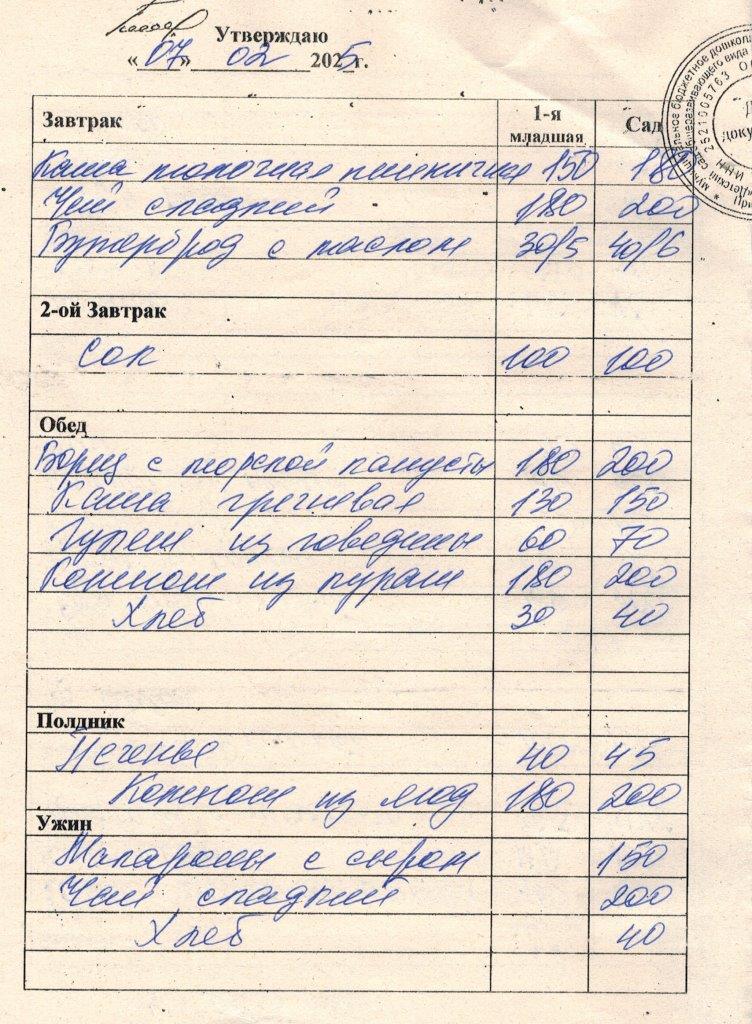 Утверждаю
«07» 02 2025г.
Завтрак 1-я младшая Сад
Каша молочная пшеничная 150 180
Чай сладкий 180 200
Бутерброд с маслом 30/5 40/6
2-ой Завтрак
Сок 100 100
Обед
Борщ с морской капусты 180 200
Каша гречневая 130 150
Гуляш из говядины 60 70
Компот из кураги 180 200
Хлеб 30 40
Полдник
Печенье 40 45
Компот из ягод 180 200
Ужин
Макароны с сыром 150
Чай сладкий 200
Хлеб 40
2521005763
ИНН